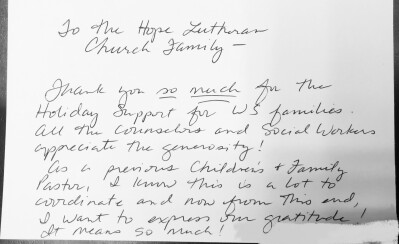 To the Hope Lutheran
Church Family —
Thank you so much for the
Holiday Support for WS families.
All the Counselors and Social Workers
appreciate the generosity!
As a previous Children's + Family
Pastor, I know this is a lot to
coordinate and now from this end,
I want to express our gratitude!
It means so much!